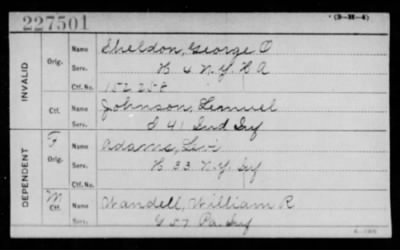 227501
(3-H-4)
INVALID
Orig.
Name Sheldon, George O
Serv. B 4 N.Y. H A
Ctf. No. 152 258
Ctf.
Name Johnson, Lemuel
Serv. I 41 Ind Inf
DEPENDENT
F
Orig.
Name Adams, Levi
Serv. B 33 N.Y. Inf
Ctf. No.
M
Ctf.
Name Wandell, William R
Serv. G 57 Pa. Inf